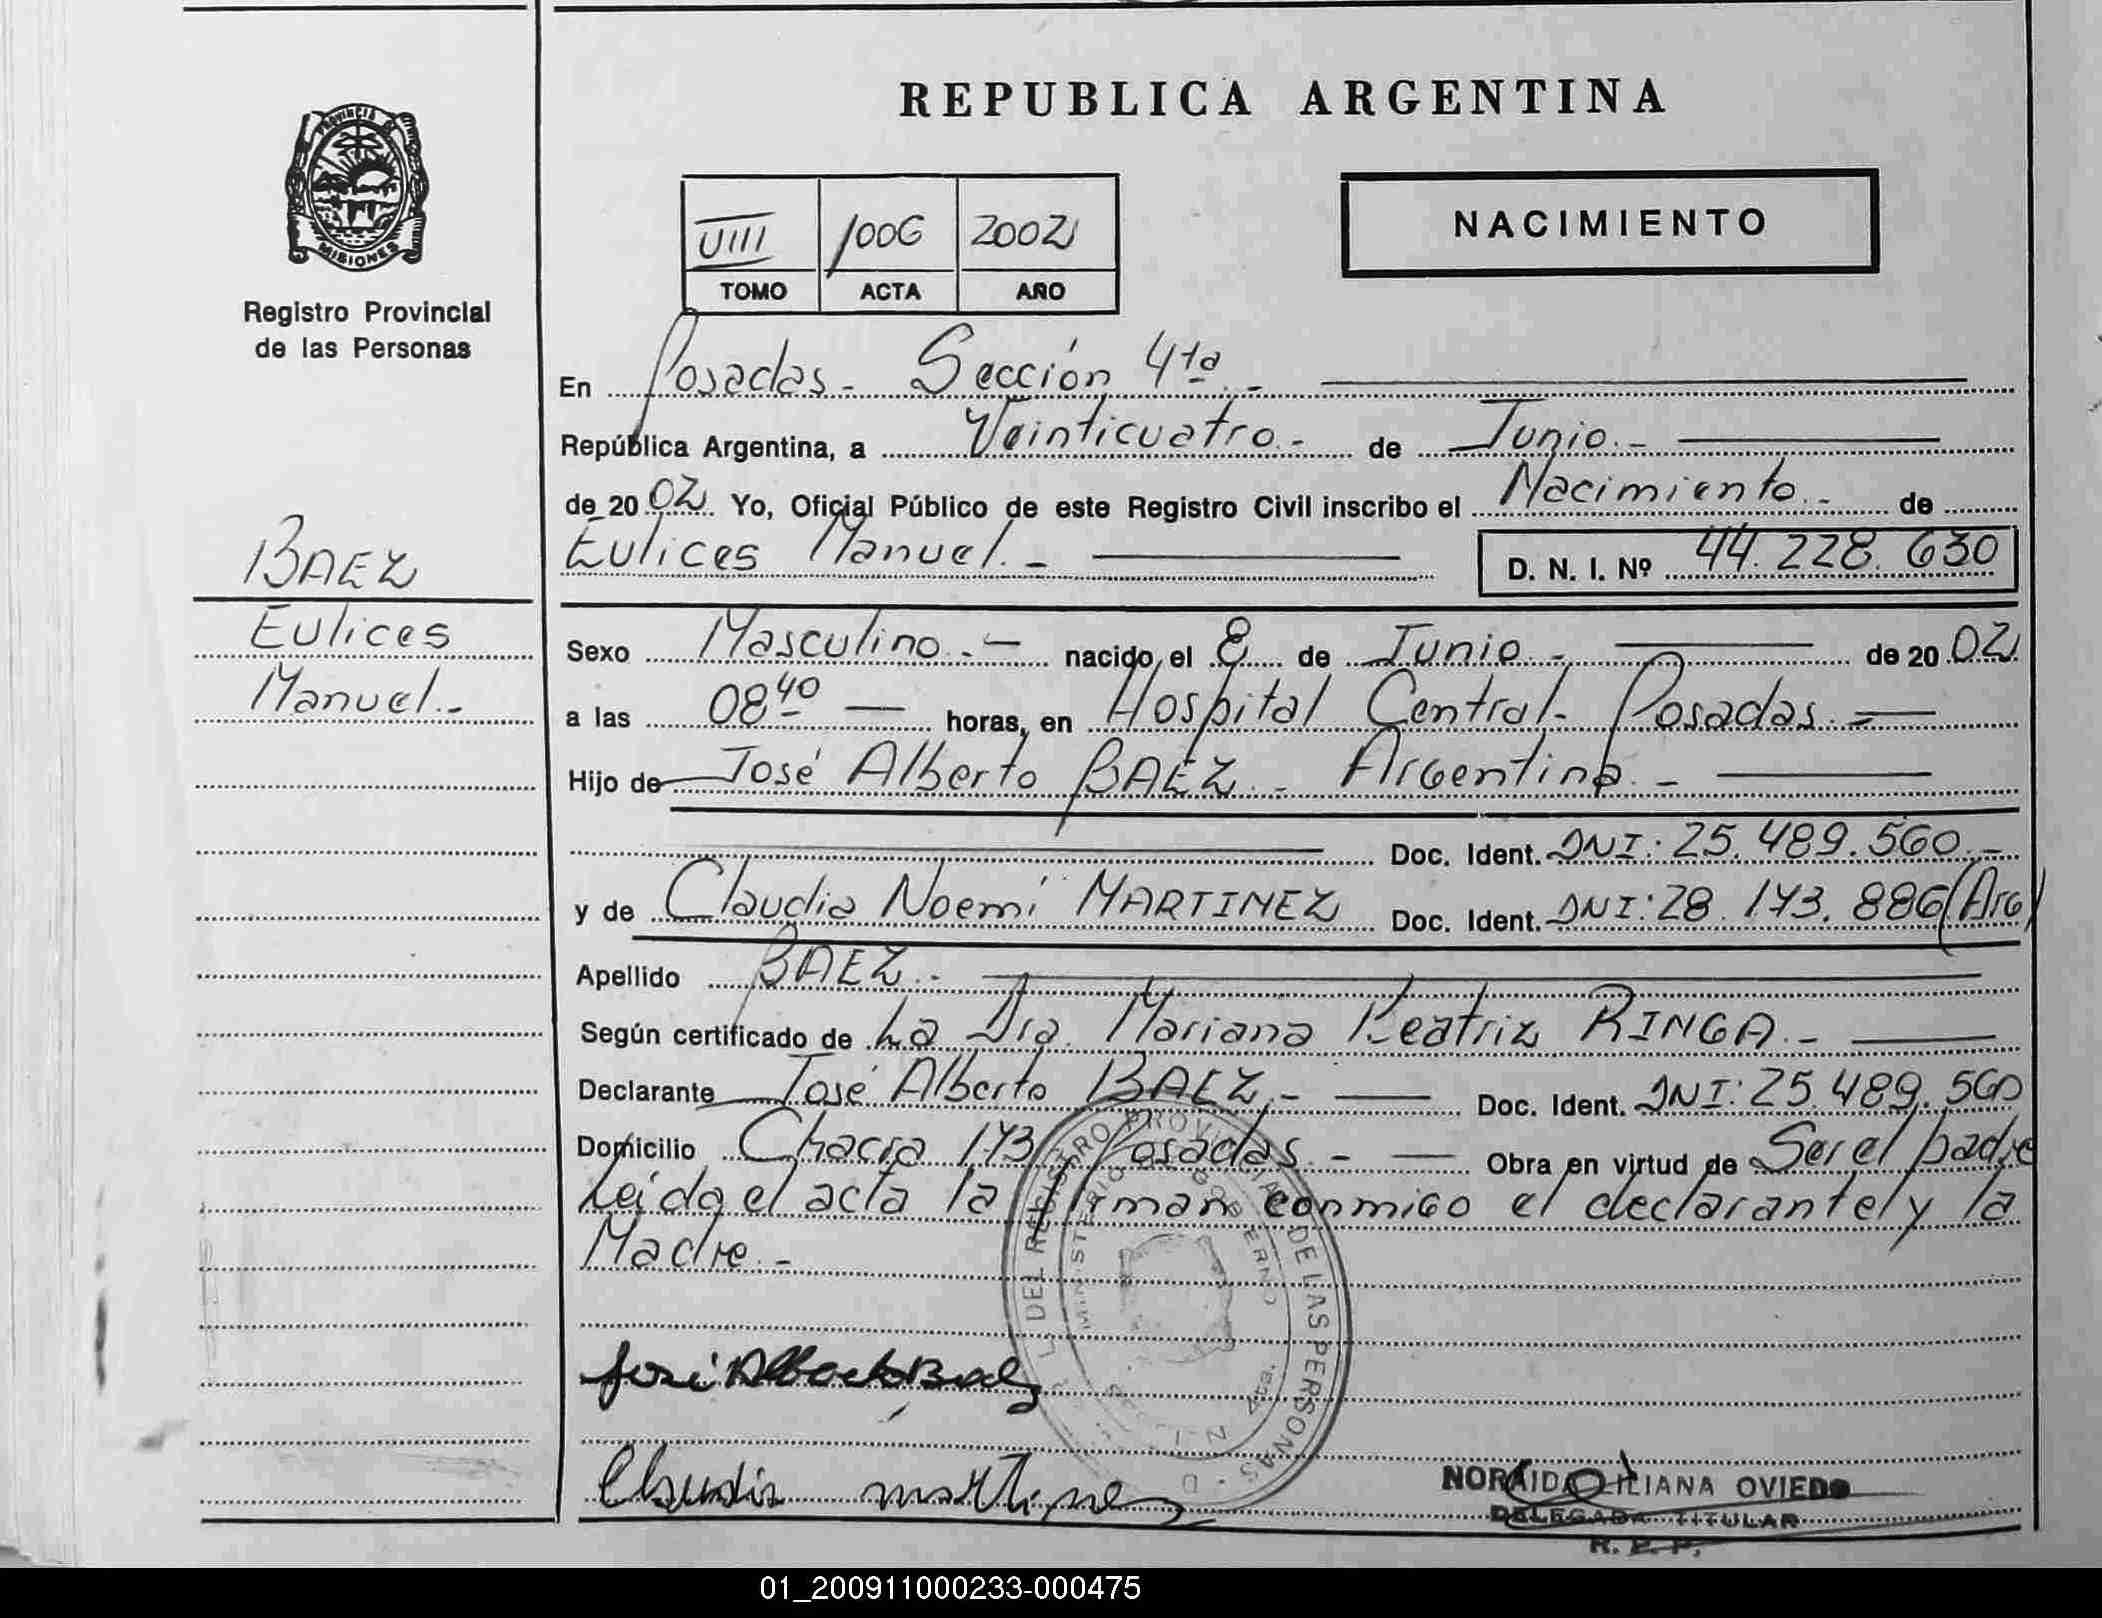 REPUBLICA ARGENTINA
PROVINCIA DE
MISIONES
Registro Provincial
de las Personas
VIII 1006 2002
TOMO ACTA AÑO
NACIMIENTO
En Posadas.- Sección 4ta.-
República Argentina, a Veinticuatro.- de Junio.-
de 2002 Yo, Oficial Público de este Registro Civil inscribo el Nacimiento.- de
Eulices Manuel.- D. N. I. Nº 44.228.630
BAEZ
Eulices
Manuel.-
Sexo Masculino.- nacido el 8 de Junio.- de 2002
a las 08 40 horas, en Hospital Central- Posadas.-
Hijo de José Alberto BAEZ.- Argentina.-
Doc. Ident. DNI: 25.489.560.-
y de Claudia Noemí MARTINEZ Doc. Ident. DNI: 28.173.886 (Arg)
Apellido BAEZ.-
Según certificado de La Dra. Mariana Beatriz RINGA.-
Declarante José Alberto BAEZ.- Doc. Ident. DNI: 25.489.560
Domicilio Chacra 173 Posadas.- Obra en virtud de Ser el padre
Leída el acta la firman conmigo el declarante y la
Madre.-
DEL REGISTRO PROVINCIAL DE LAS PERSONAS
MINISTERIO GOBIERNO
4ta.
José Alberto Baez
Claudia Martinez
NORAIDA LILIANA OVIEDO
DELEGADA TITULAR
R. P. P.
01_200911000233-000475